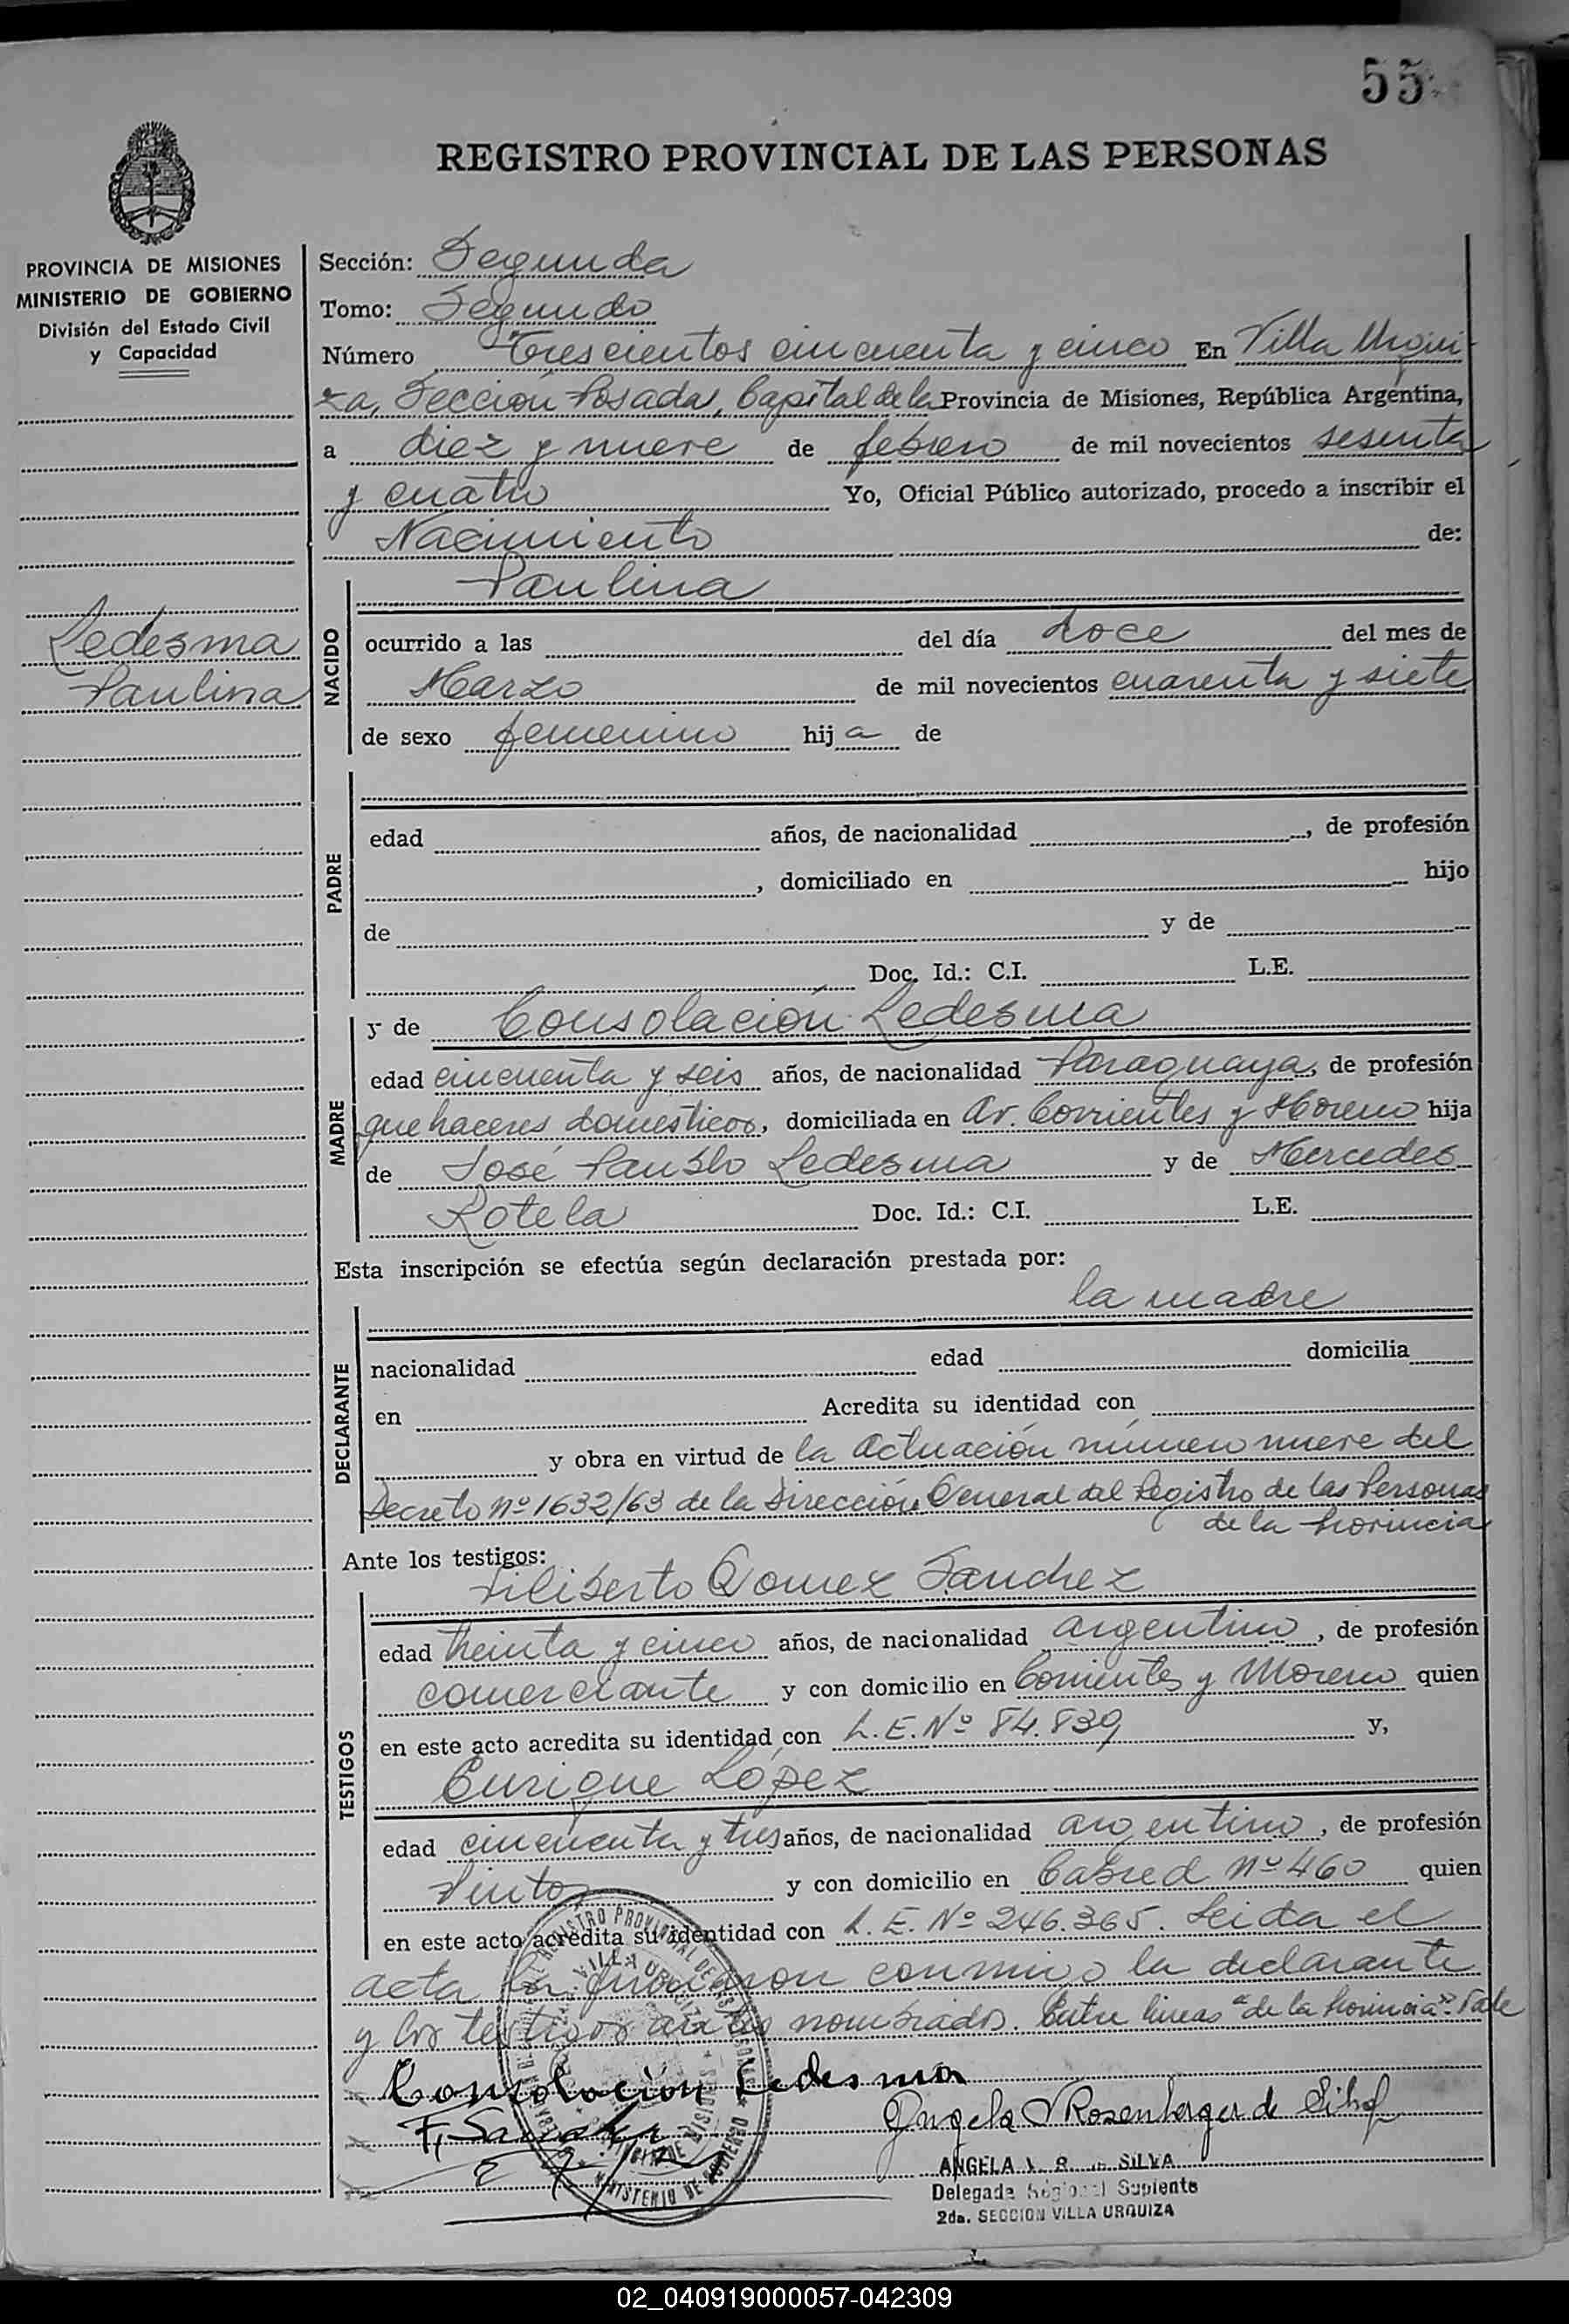 55
REGISTRO PROVINCIAL DE LAS PERSONAS
PROVINCIA DE MISIONES
MINISTERIO DE GOBIERNO
División del Estado Civil
y Capacidad
Ledesma
Paulina
Sección: Segunda
Tomo: Segundo
Número Trescientos cincuenta y cinco En Villa Urqui
za, Sección Posadas, Capital de la Provincia de Misiones, República Argentina,
a diez y nueve de febrero de mil novecientos sesenta
y cuatro Yo, Oficial Público autorizado, procedo a inscribir el
Nacimiento de:
NACIDO
Paulina
ocurrido a las del día doce del mes de
Marzo de mil novecientos cuarenta y siete
de sexo femenino hija de
PADRE
edad años, de nacionalidad , de profesión
, domiciliado en hijo
de y de
Doc. Id.: C.I. L.E.
MADRE
y de Consolación Ledesma
edad cincuenta y seis años, de nacionalidad Paraguaya, de profesión
que haceres domesticos, domiciliada en Av. Corrientes y Moreno hija
de José Pablo Ledesma y de Mercedes
Rotela Doc. Id.: C.I. L.E.
Esta inscripción se efectúa según declaración prestada por:
la madre
DECLARANTE
nacionalidad edad domicilia
en Acredita su identidad con
y obra en virtud de la actuación número nueve del
Decreto Nº 1632/63 de la Dirección General del Registro de las Personas
de la Provincia
Ante los testigos:
TESTIGOS
Filiberto Gomez Sanchez
edad treinta y cinco años, de nacionalidad argentino, de profesión
comerciante y con domicilio en Corrientes y Moreno quien
en este acto acredita su identidad con L.E. Nº 84.839 y,
Enrique López
edad cincuenta y tres años, de nacionalidad argentino, de profesión
Pintor y con domicilio en Cabred Nº 460 quien
en este acto acredita su identidad con L.E. Nº 246.365. Leida el
acta la firmaron conmigo la declarante
y los testigos antes nombrados. Entre lineas "de la Provincia". Vale
Consolacion Ledesma
F. Sanchez
Angela V Rosenberger de Silva
ANGELA V. R. DE SILVA
Delegada Regional Suplente
2da. SECCION VILLA URQUIZA
REGISTRO PROVINCIAL DE LAS PERSONAS
VILLA URQUIZA
MINISTERIO DE GOBIERNO
02_040919000057-042309